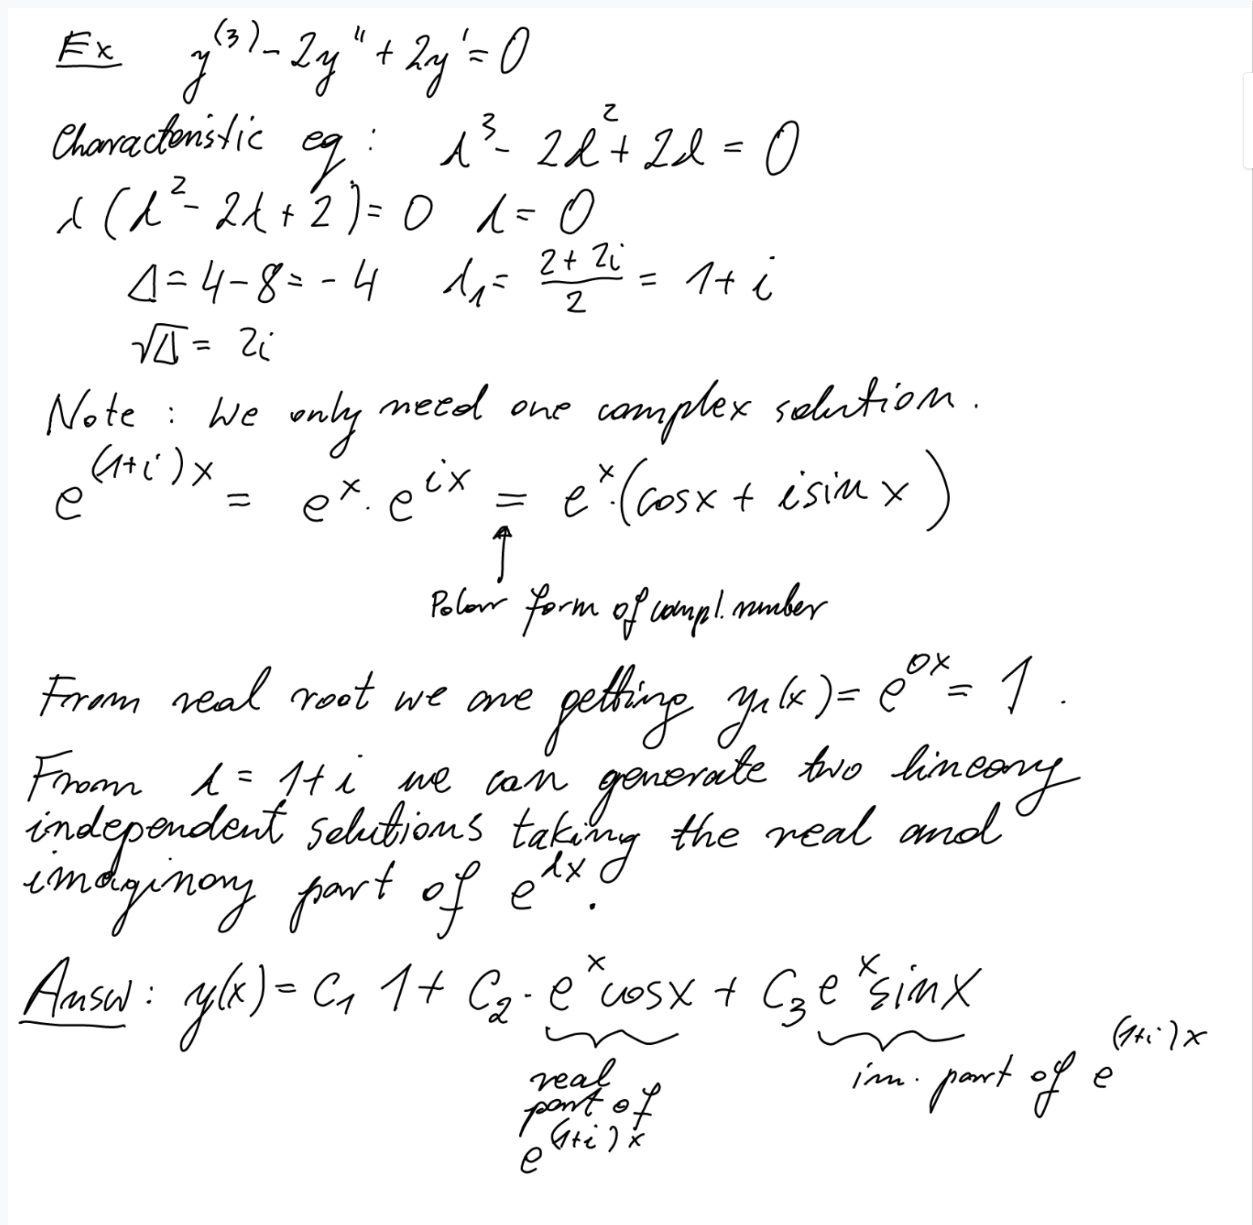 Ex y^(3) - 2y'' + 2y' = 0
Characteristic eq: λ^3 - 2λ^2 + 2λ = 0
λ(λ^2 - 2λ + 2) = 0 λ = 0
Δ = 4 - 8 = -4 λ_1 = (2 + 2i)/2 = 1 + i
√Δ = 2i
Note: We only need one complex solution.
e^((1+i)x) = e^x · e^(ix) = e^x · (cosx + isinx)
↑
Polar form of compl. number
From real root we are getting y_1(x) = e^(0x) = 1.
From λ = 1 + i we can generate two lineary
independent solutions taking the real and
imaginary part of e^(λx).
Answ: y(x) = C_1 1 + C_2 · e^x cosx + C_3 e^x sinx
real part of e^((1+i)x)
im. part of e^((1+i)x)